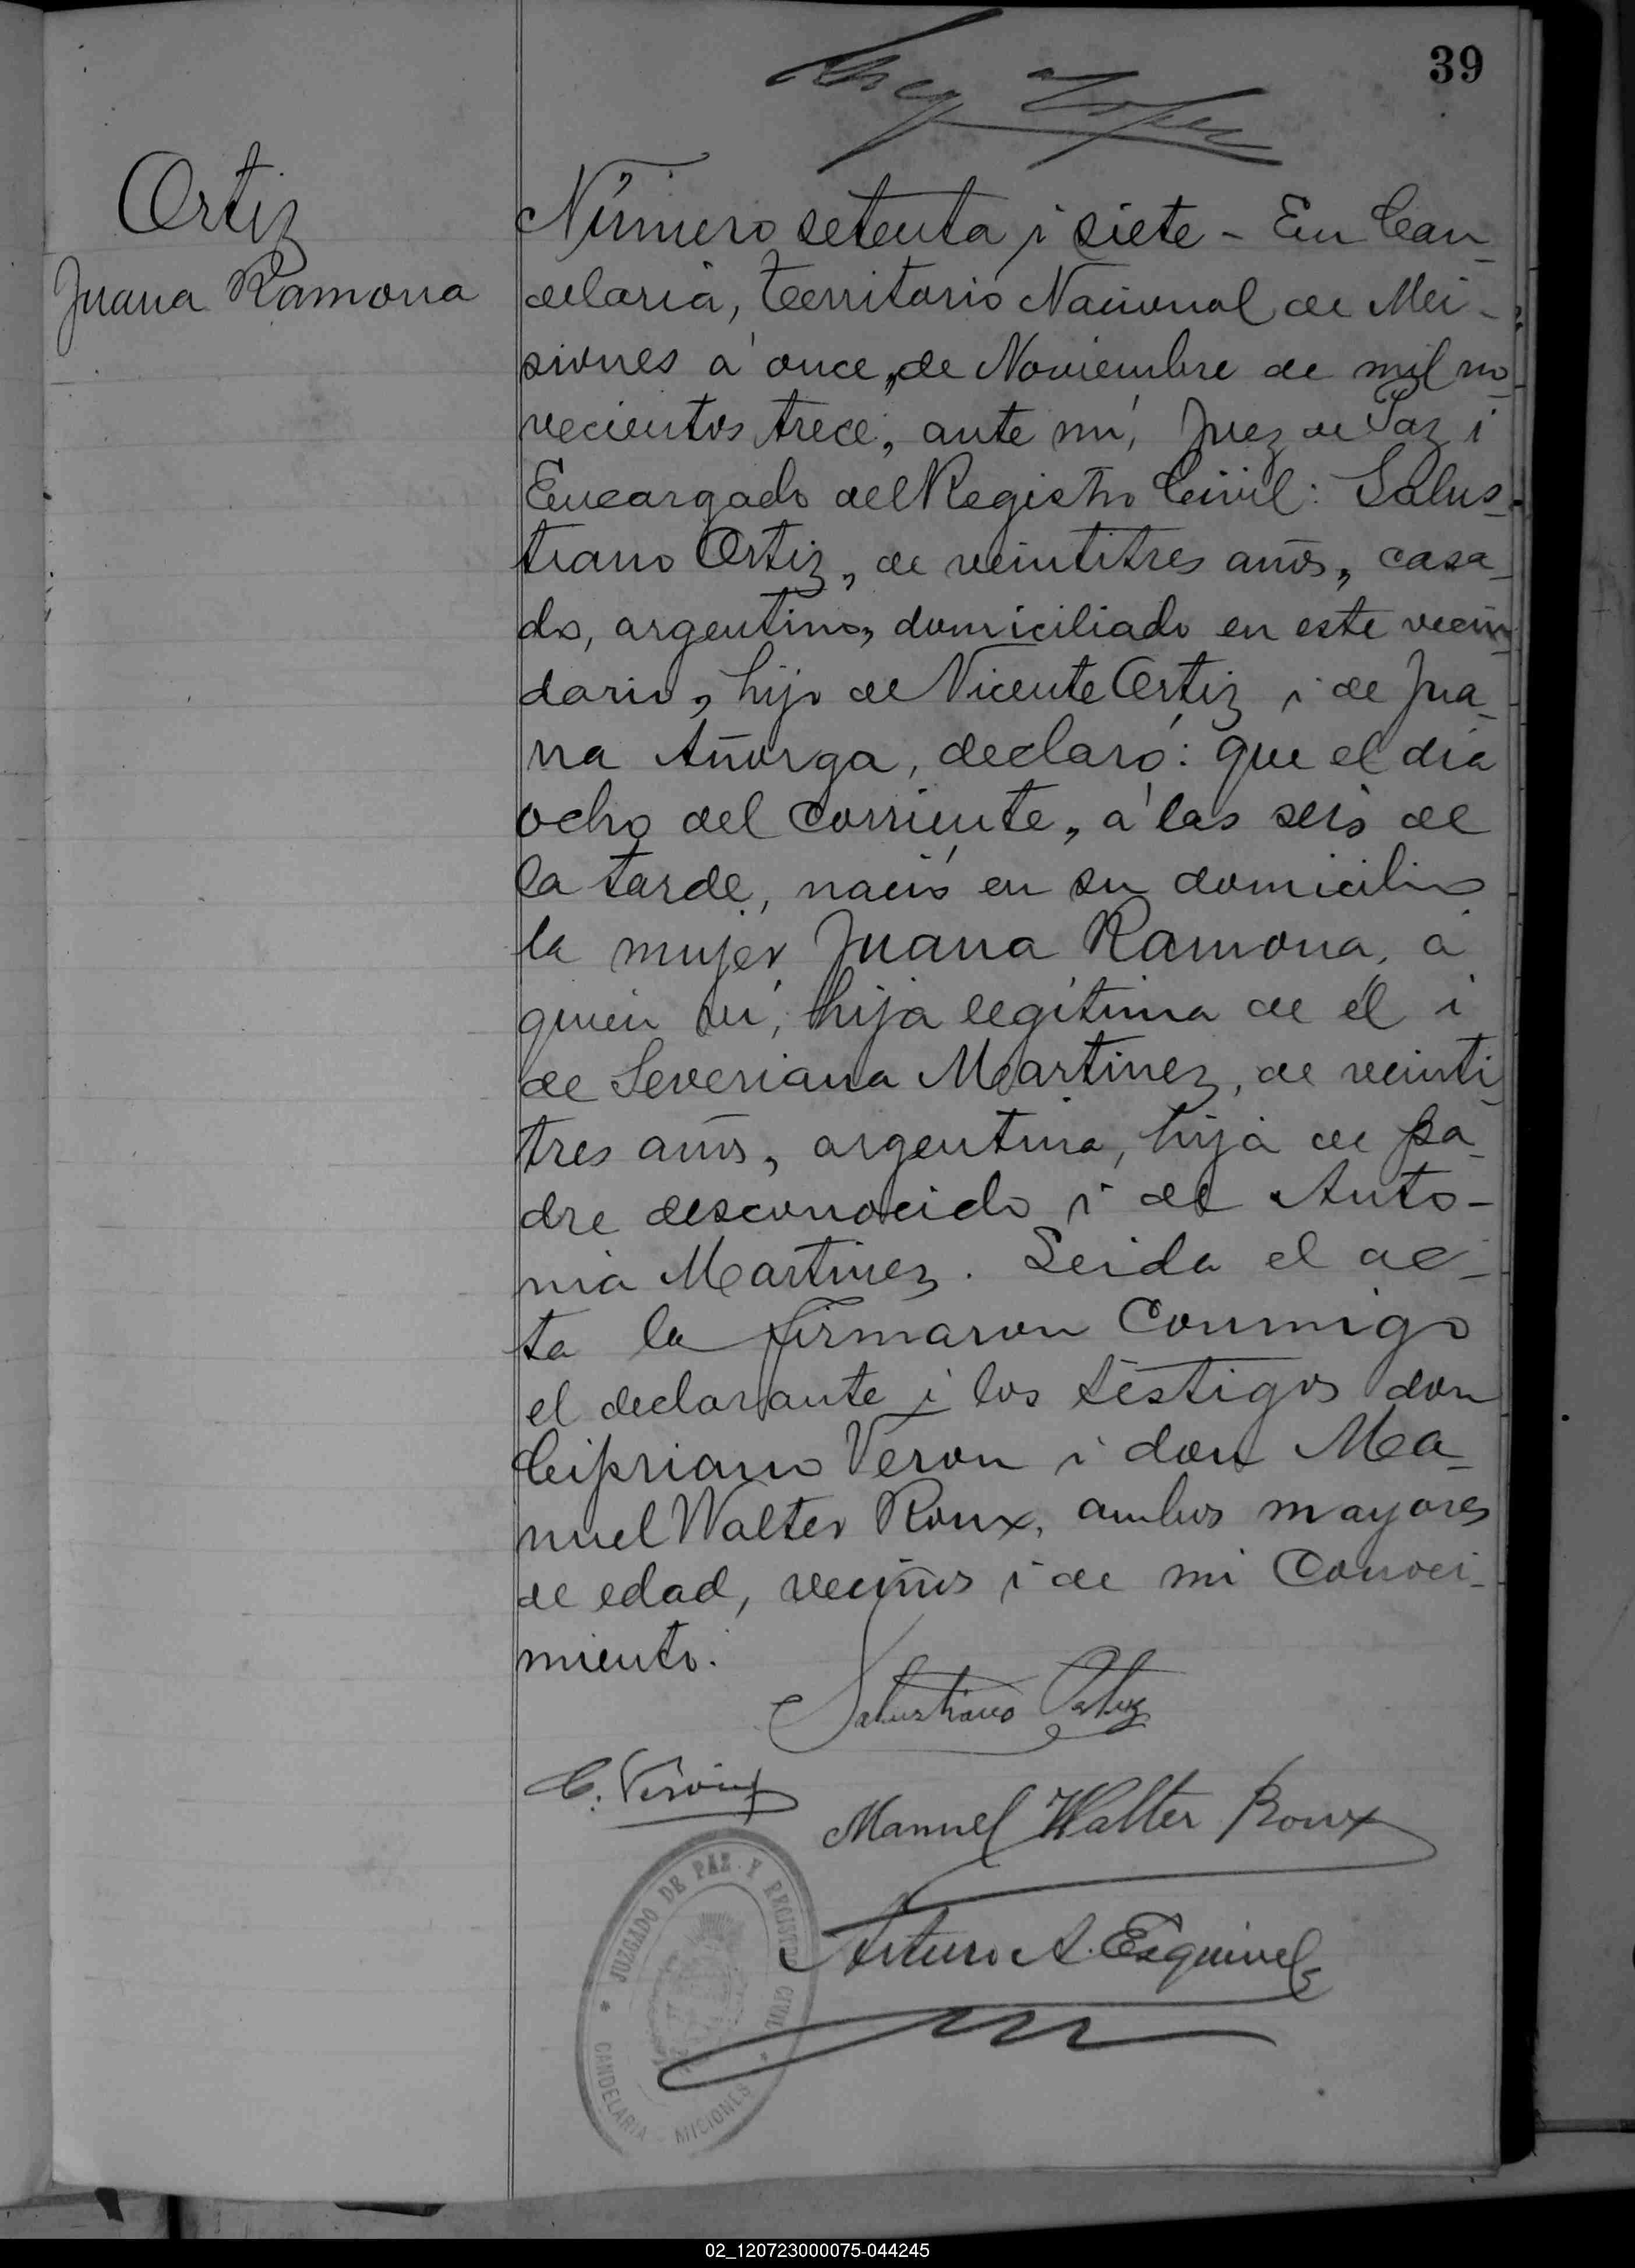 39
Ortiz
Juana Ramona
Número setenta i siete - En Can-
delaria, territorio Nacional de Mi-
siones á once, de Noviembre de mil no-
vecientos trece, ante mí, Juez de Paz i
Encargado del Registro Civil: Salus-
tiano Ortiz, de veintitres años, casa-
do, argentino, domiciliado en este vecin-
dario, hijo de Vicente Ortiz i de Jua-
na Añorga, declaró: que el día
ocho del corriente, á las seis de
la tarde, nació en su domicilio
la mujer Juana Ramona, á
quien ví, hija legítima de él i
de Severiana Martinez, de veinti-
tres años, argentina, hija de pa-
dre desconocido i de Anto-
nia Martinez. Leida el ac-
ta la firmaron conmigo
el declarante i los testigos don
Cipriano Veron i don Ma-
nuel Walter Roux, ambos mayores
de edad, vecinos i de mi conoci-
miento.
Salustiano Ortiz
C. Veron
Manuel Walter Roux
Arturo A. Esquivel
JUZGADO DE PAZ Y REGISTRO CIVIL
CANDELARIA MICIONES
02_120723000075-044245